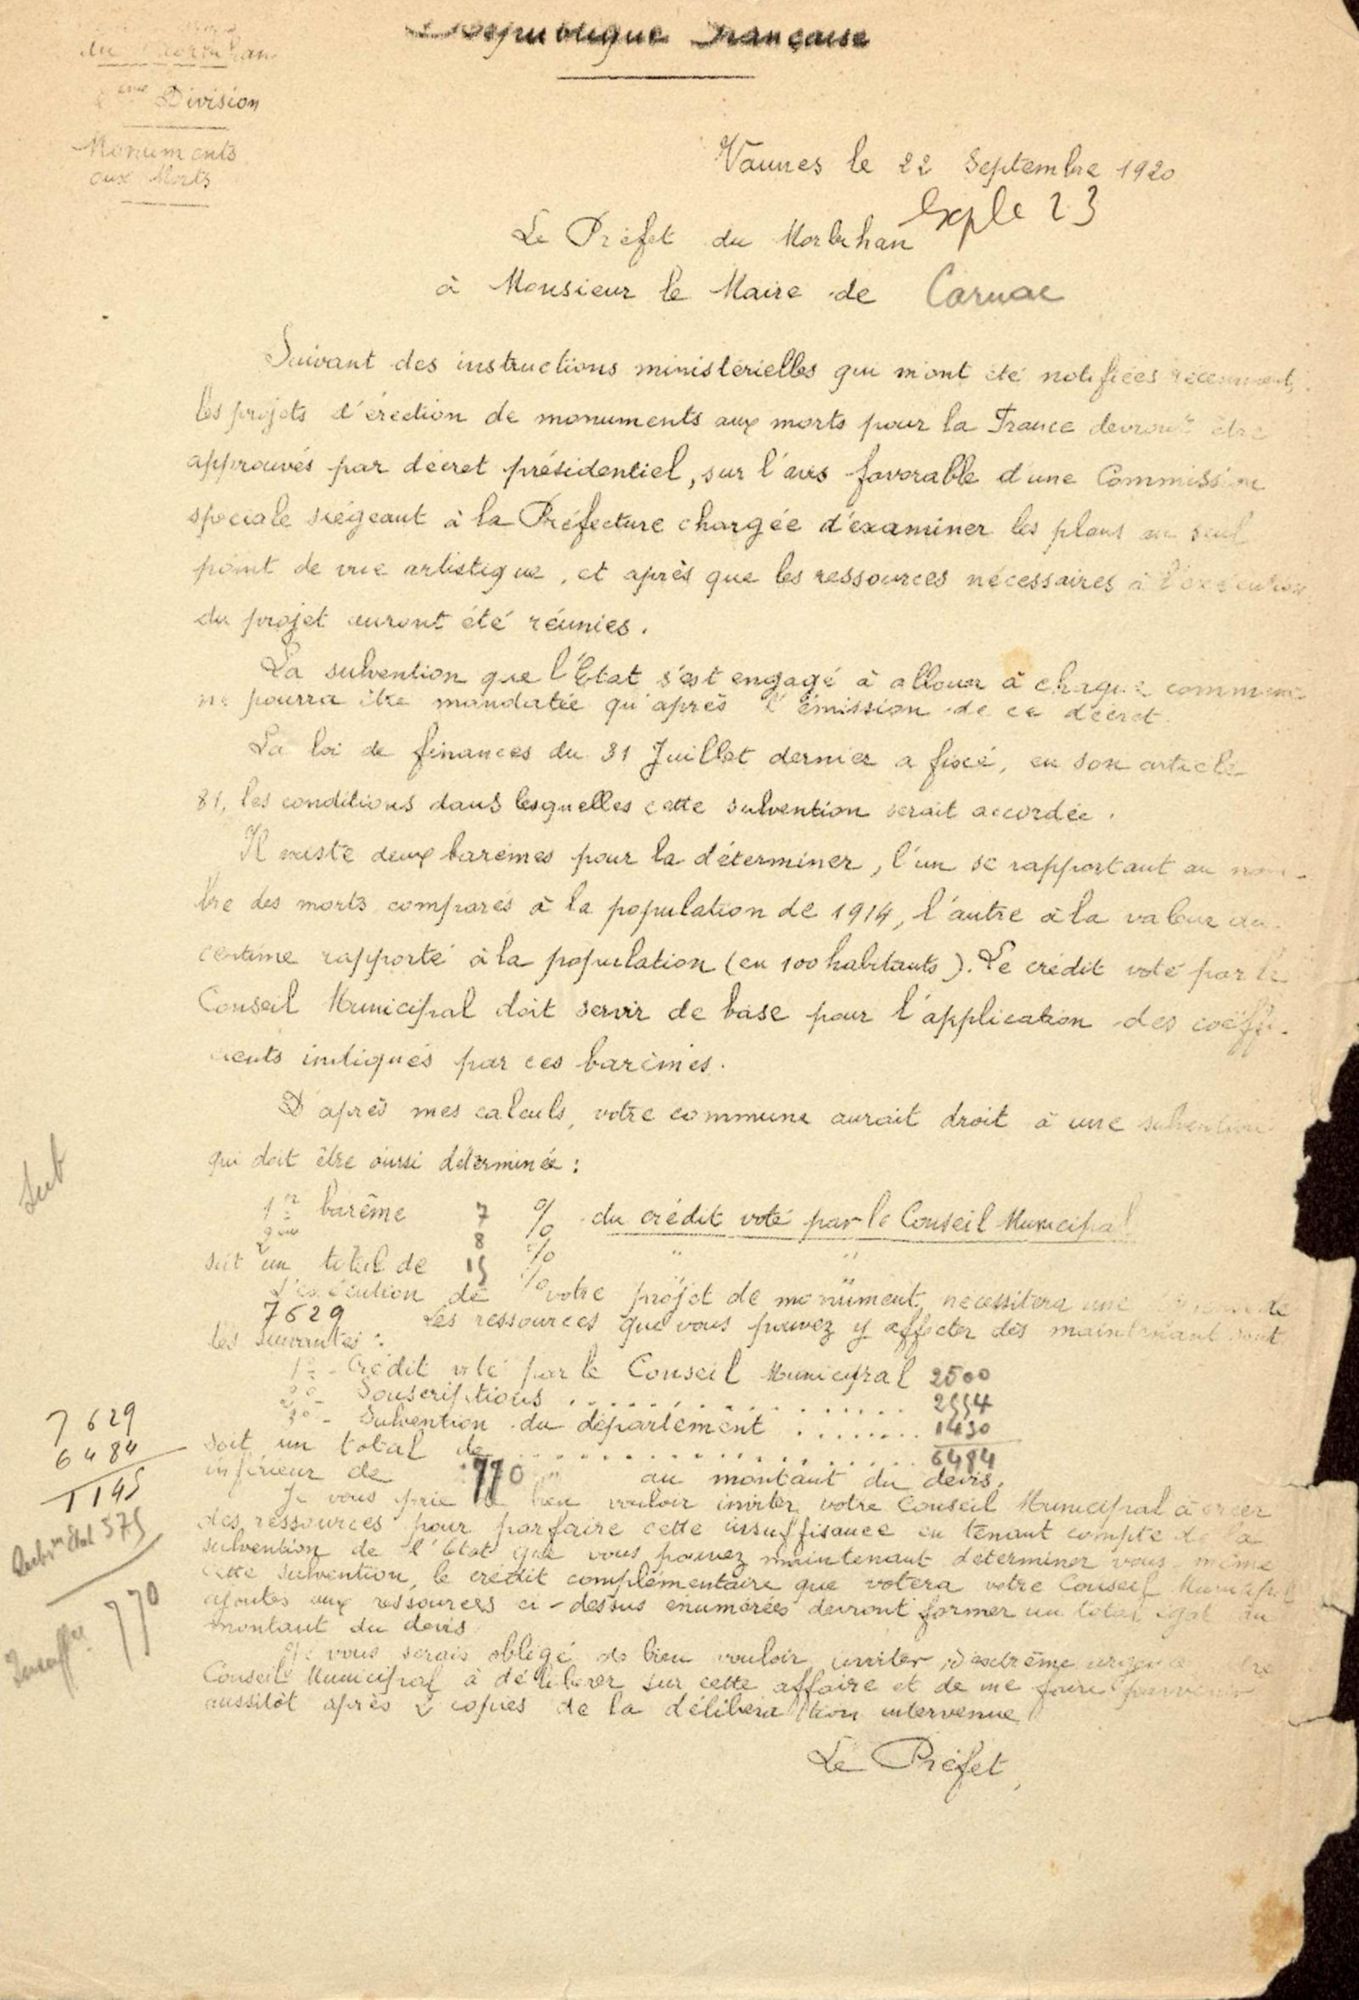 République Française
du Morbihan
2eme Division
Monuments
aux Morts
Vannes le 22 Septembre 1920
Exple 23
Le Préfet du Morbihan
à Monsieur le Maire de Carnac
Suivant des instructions ministérielles qui m'ont été notifiées récemment,
les projets d'érection de monuments aux morts pour la France devront être
approuvés par décret présidentiel, sur l'avis favorable d'une Commission
spéciale siégeant à la Préfecture chargée d'examiner les plans au seul
point de vue artistique, et après que les ressources nécessaires à l'exécution
du projet auront été réunies.
La subvention que l'Etat s'est engagé à allouer à chaque commune
ne pourra être mandatée qu'après l'émission de ce décret.
La loi de finances du 31 Juillet dernier a fixé, en son article
81, les conditions dans lesquelles cette subvention serait accordée.
Il existe deux barêmes pour la déterminer, l'un se rapportant au nom-
bre des morts comparés à la population de 1914, l'autre à la valeur du
centime rapporté à la population (en 100 habitants). Le crédit voté par le
Conseil Municipal doit servir de base pour l'application des coëffi-
cients indiqués par ces barêmes.
D'après mes calculs, votre commune aurait droit à une subvention
qui doit être ainsi déterminée :
1er barême 7 % du crédit voté par le Conseil Municipal
2eme 8 % " "
soit un total de 15 % "
L'exécution de votre projet de monument nécessitera une de
7629 Les ressources que vous pouvez y affecter dès maintenant sont
les suivantes :
1º - Crédit voté par le Conseil Municipal 2500
2º - Souscriptions .................. 2554
3º - Subvention du département ........ 1430
soit un total de .................. 6484
inférieur de 770 " au montant du devis.
Je vous prie de bien vouloir inviter votre Conseil Municipal à créer
des ressources pour parfaire cette insuffisance en tenant compte de la
subvention de l'Etat que vous pouvez maintenant déterminer vous-même
Cette subvention, le crédit complémentaire que votera votre Conseil Municipal
ajoutés aux ressources ci-dessus énumérées devront former un total égal au
montant du devis
Je vous serais obligé de bien vouloir inviter d'extrême urgence votre
Conseil Municipal à délibérer sur cette affaire et de me faire parvenir
aussitôt après 2 copies de la délibération intervenue
Le Préfet,
Sub
7629
6484
1145
Subion Etat 375
770